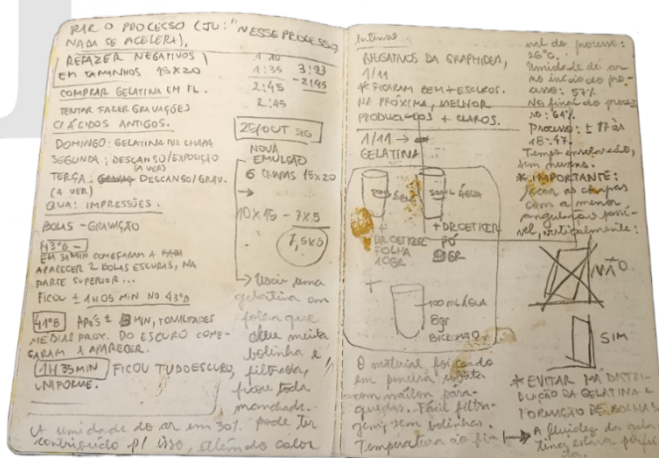 RIR O PROCESSO (JU: "NESSE PROCESSO
NADA SE ACELERA),
REFAZER NEGATIVOS
EM TAMANHOS 15X20
COMPRAR GELATINA EM FL.
TENTAR FAZER GRAVAÇÕES
C/ ÁCIDOS ANTIGOS.
DOMINGO: GELATINA NA CHAPA
SEGUNDA: DESCANSO/EXPOSIÇÃO
(A VER)
TERÇA: DESCANSO/GRAV.
(A VER)
QUA: IMPRESSÕES.
BOLAS - GRAVAÇÃO
43°B -
EM 31MIN COMEÇARAM A
APARECER 2 BOLAS ESCURAS, NA
PARTE SUPERIOR...
FICOU ± 1H05 MIN NO 43°B
41°B APÓS ± MIN, TONALIDADES
MÉDIAS PROX. DO ESCURO COME-
ÇARAM A APARECER.
1H35MIN FICOU TUDO ESCURO,
UNIFORME.
A umidade do ar em 30% pode ter
contribuído p/ isso, além do calor
1:35
2:45
2:45
3:23
-2:45
SEG
NOVA
EMULSÃO
6 CHAPAS 15X20
→
10X15 - 7X5
7,5X5
→ Usei uma
gelatina em
folha que
deu muita
bolinha e,
filtrada,
ficou toda
manchada.
Intenso
NEGATIVOS DA GRAPHIDEA,
1/11
* FICARAM BEM + ESCUROS.
NA PRÓXIMA, MELHOR
PRODUZI-LOS + CLAROS.
1/11 →
GELATINA
ÁGUA
50ML ÁGUA
+
DR OETKER
FOLHA
10GR
+ DR OETKER
PÓ
GR
+
100 ML ÁGUA
8gr
BICROMATO
O material foi coado
em peneira
com nailon pára-
quedas. Fácil filtra-
gem, sem bolinhas.
Temperatura ao fim
do processo:
26°C.
Umidade de ar
no início do pro-
cesso: 57%
No final do proces-
so: 61%
Processo: ± 17 às
18:47.
Tempo ensolarado,
sem nuvens.
* IMPORTANTE:
Secar as chapas
com a menor
angulação possí-
vel, verticalmente:
NÃO
SIM
* EVITAR MÁ DISTRI-
BUIÇÃO DA GELATINA E
FORMAÇÃO DE BOLHAS.
→ A fluidez da gela
tina estava perfei